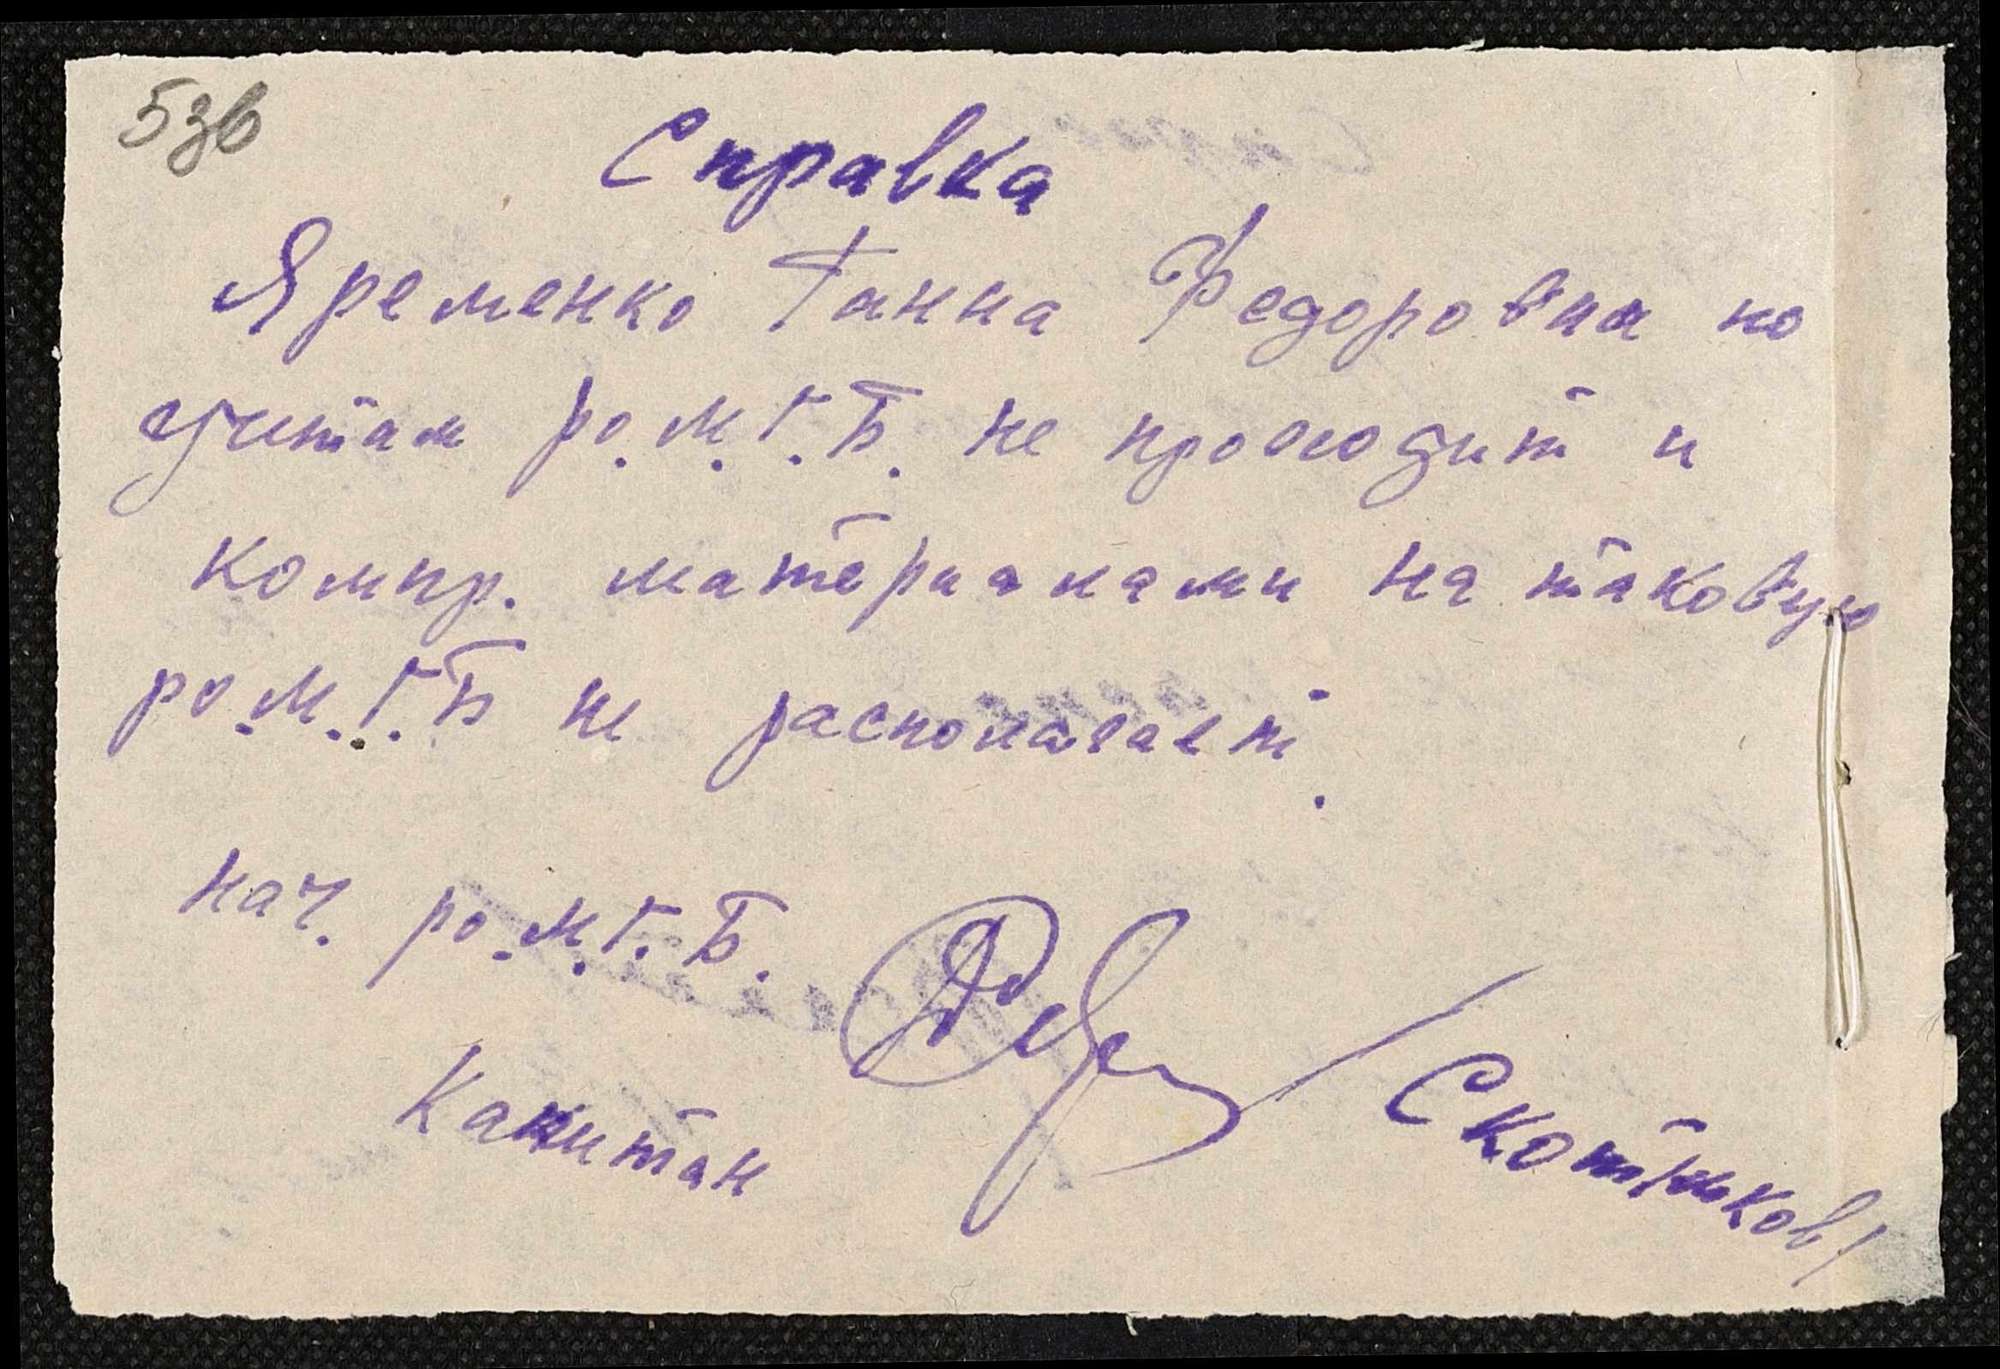 536
Справка
Яременко Ганна Федоровна по
учетам ро.М.Г.Б. не проходит и
компр. материалами на таковую
ро.М.Г.Б не располагает.
нач. ро.М.Г.Б.
Капитан
/Скотников/